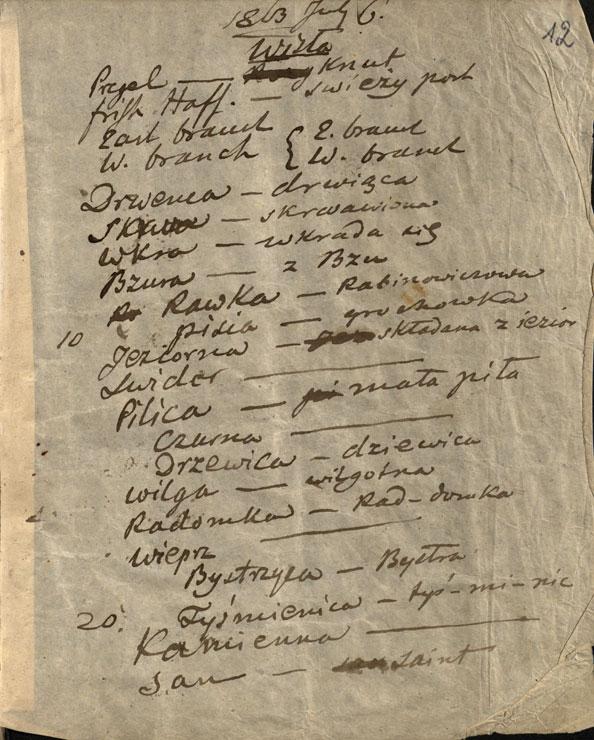 1863 July 6.
12
Wisła
Pregel — Knut
frish Haff. — świeży port
East branch { E. branch
W. branch W. branch
Drwenca — drwiąca
Skawa — skrwawiona
Wkra — wkrada się
Bzura — z Bzu
Rawka — Rabinowiczowa
10 pisia — grochowka
Jeziorna — składana z jezior
Swider —
Pilica — mała piła
Czarna —
Drzewica — dziewica
Wilga — wilgotna
Radomka — Rad-domka
Wieprz —
Bystrzyca — Bystra
20. Tyśmienica — tyś-mi-nic
Kamienna —
San — saint